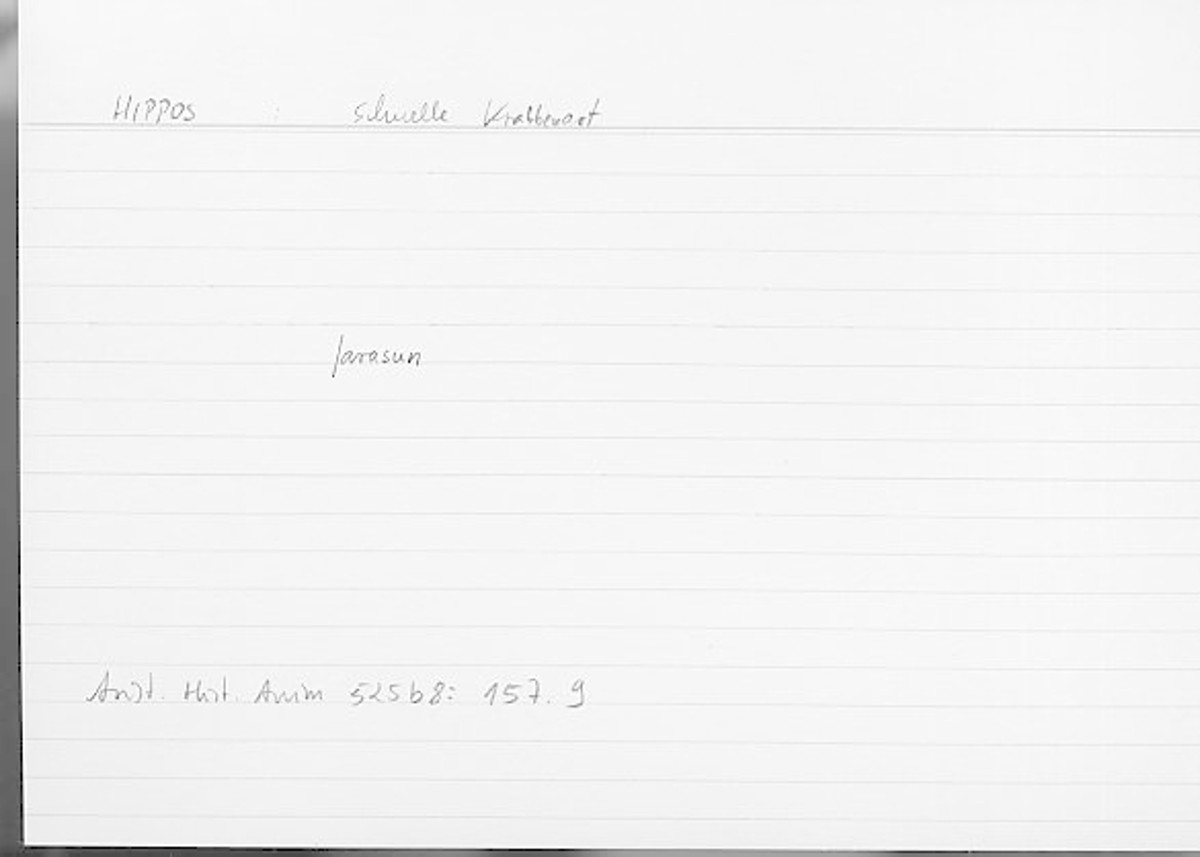 HIPPOS : schnelle Krabbenart
farasun
Arist. Hist. Anim 525b8: 157.9